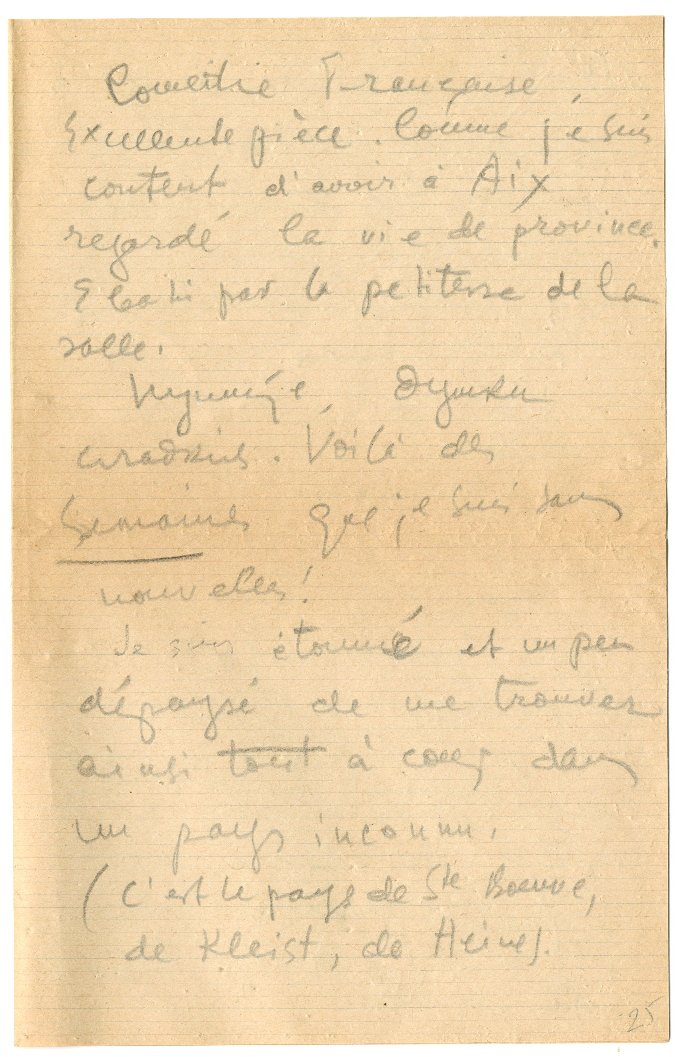 Comédie Française
Excellente pièce. Comme je suis
content d'avoir à Aix
regardé la vie de province.
Ebahi par la petitesse de la
salle.
Voilà des
semaines que je suis sans
nouvelles!
Je suis étonné et un peu
dépaysé de me trouver
ainsi tout à coup dans
un pays inconnu.
(C'est le pays de Ste Boeuve,
de Kleist, de Heine).
25